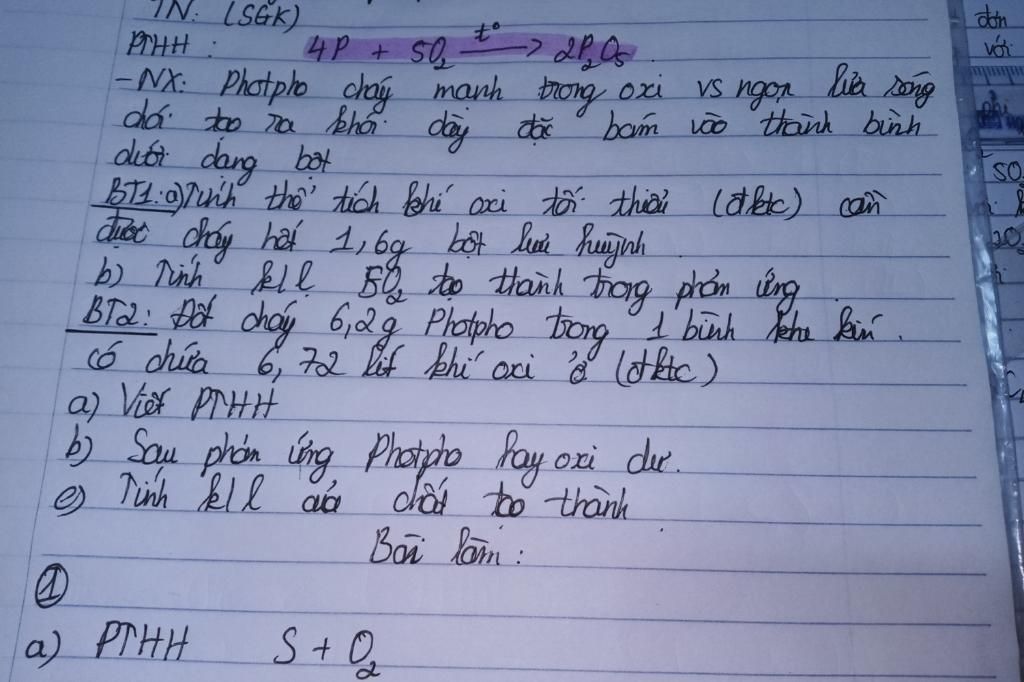 TN: (SGK)
PTHH : 4P + 5O₂ →t° 2P₂O₅
-NX: Photpho cháy mạnh trong oxi vs ngọn lửa sáng
chói tạo ra khói dày đặc bám vào thành bình
dưới dạng bột
BT1: a) Tính thể tích khí oxi tối thiểu (đktc) cần
được cháy hết 1,6g bột lưu huỳnh
b) Tính kll SO₂ tạo thành trong phản ứng
BT2: Đốt cháy 6,2g Photpho trong 1 bình khu kín.
có chứa 6,72 lít khí oxi ở (đktc)
a) Viết PTHH
b) Sau phản ứng Photpho hay oxi dư.
c) Tính kll của chất tạo thành
Bài làm:
①
a) PTHH S + O₂
đơn
với